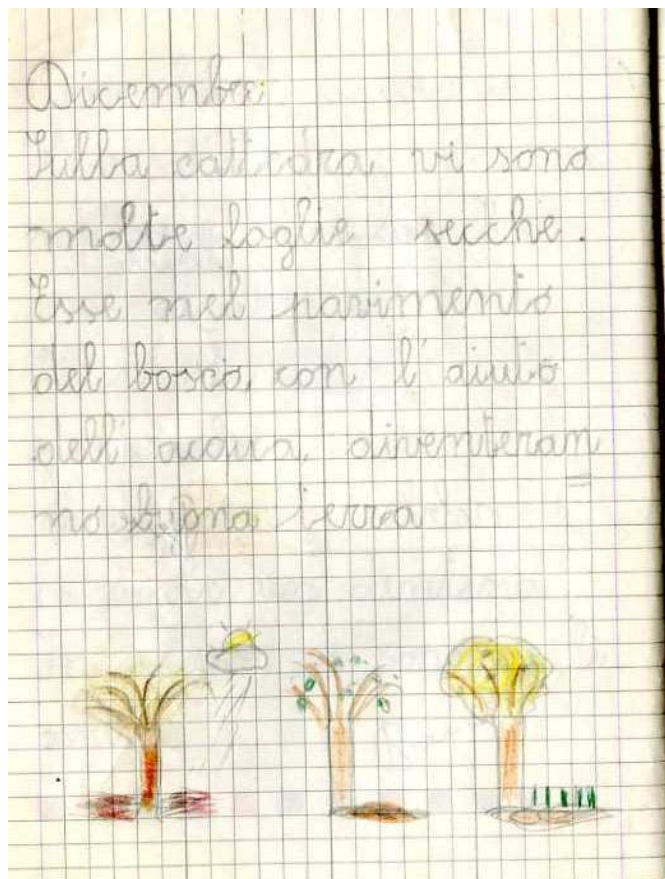 Dicembre
Sulla vi sono
molte foglie secche.
Esse nel pavimento
del bosco, con l'aiuto
dell'acqua, diventeran
no buona terra